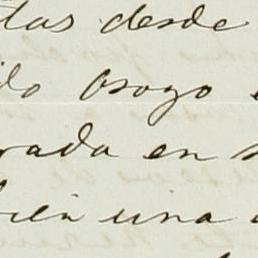 tas desde
ilo Orozo
rada en s
bien una